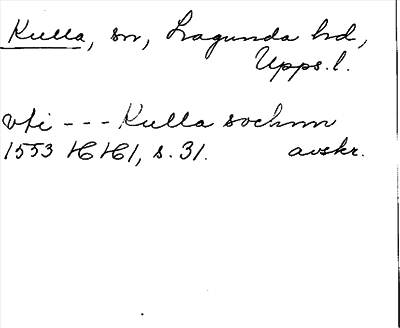 Kulla, sn, Lagunda hd,
Upps. l.
vti --- Kulla sochnn
1553 HH1, s. 31. avskr.